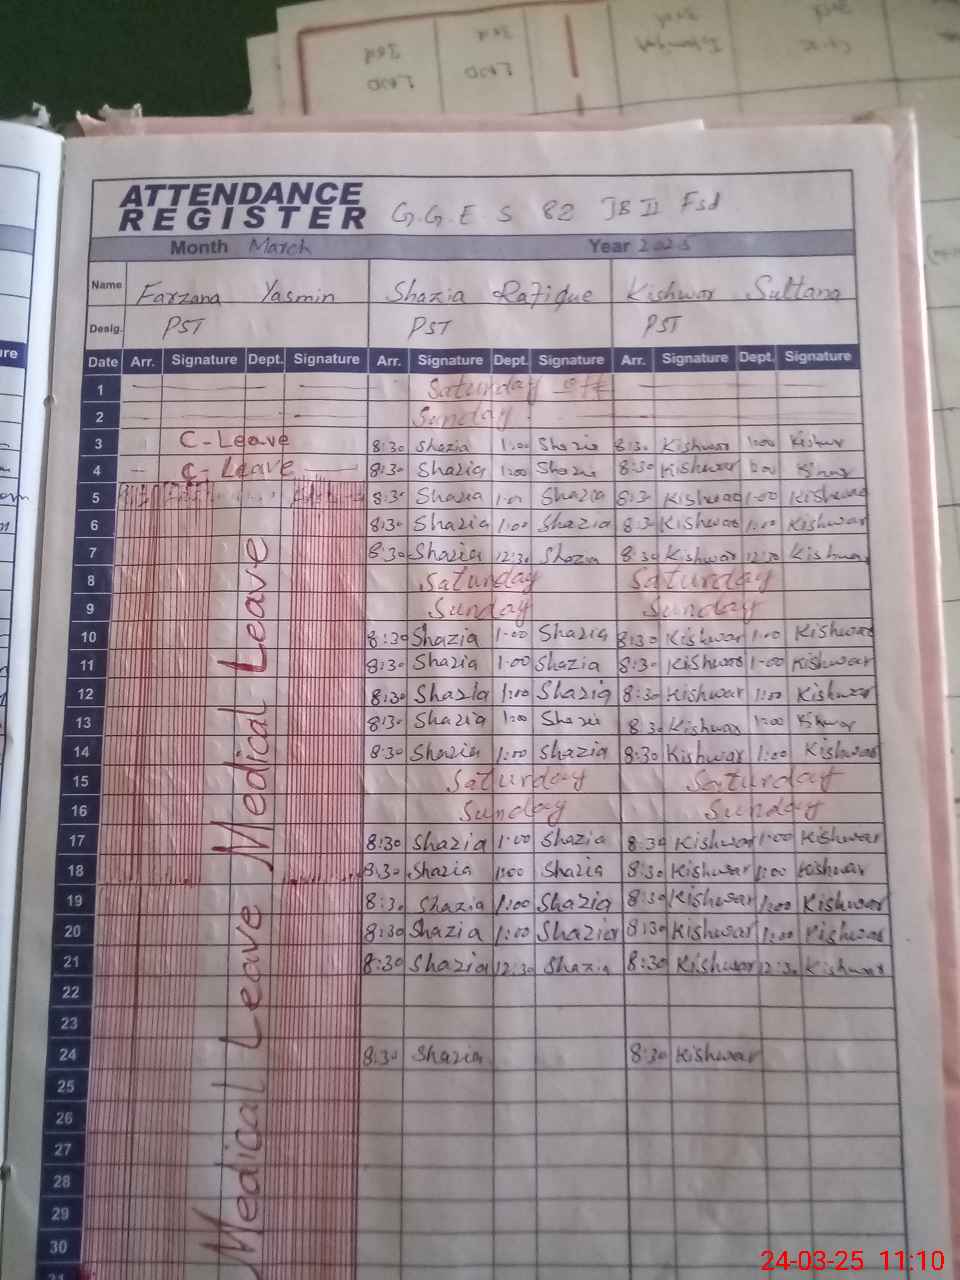 ATTENDANCE
REGISTER G.G.E S 82 JB II Fsd
Month March Year 2025
Name Farzana Yasmin Shazia Rafique Kishwar Sultana
Desig. PST PST PST
Date Arr. Signature Dept. Signature Arr. Signature Dept. Signature Arr. Signature Dept. Signature
1 Saturday off
2 Sunday
3 C-Leave 8:30 Shazia 1:00 Shazia 8:30 Kishwar 1:00 Kishwar
4 C-Leave 8:30 Shazia 1:00 Shazia 8:30 Kishwar 1:00
5 8:30 Shazia 1:00 Shazia 8:30 Kishwar 1:00 Kishwar
6 8:30 Shazia 1:00 Shazia 8:30 Kishwar 1:00 Kishwar
7 8:30 Shazia 12:30 Shazia 8:30 Kishwar 12:30 Kishwar
8 Saturday Saturday
9 Sunday Sunday
10 8:30 Shazia 1:00 Shazia 8:30 Kishwar 1:00 Kishwar
11 8:30 Shazia 1:00 Shazia 8:30 Kishwar 1:00 Kishwar
12 8:30 Shazia 1:00 Shazia 8:30 Kishwar 1:00 Kishwar
13 8:30 Shazia 1:00 Shazia 8:30 Kishwar 1:00 Kishwar
14 8:30 Shazia 1:00 Shazia 8:30 Kishwar 1:00 Kishwar
15 Saturday Saturday
16 Sunday Sunday
17 8:30 Shazia 1:00 Shazia 8:30 Kishwar 1:00 Kishwar
18 8:30 Shazia 1:00 Shazia 8:30 Kishwar 1:00 Kishwar
Medical Leave
19 8:30 Shazia 1:00 Shazia 8:30 Kishwar 1:00 Kishwar
20 8:30 Shazia 1:00 Shazia 8:30 Kishwar 1:00 Kishwar
21 8:30 Shazia 12:30 Shazia 8:30 Kishwar 12:30 Kishwar
22
23
24 8:30 Shazia 8:30 Kishwar
25
26
27
28
29
30
31
Medical Leave
24-03-25 11:10